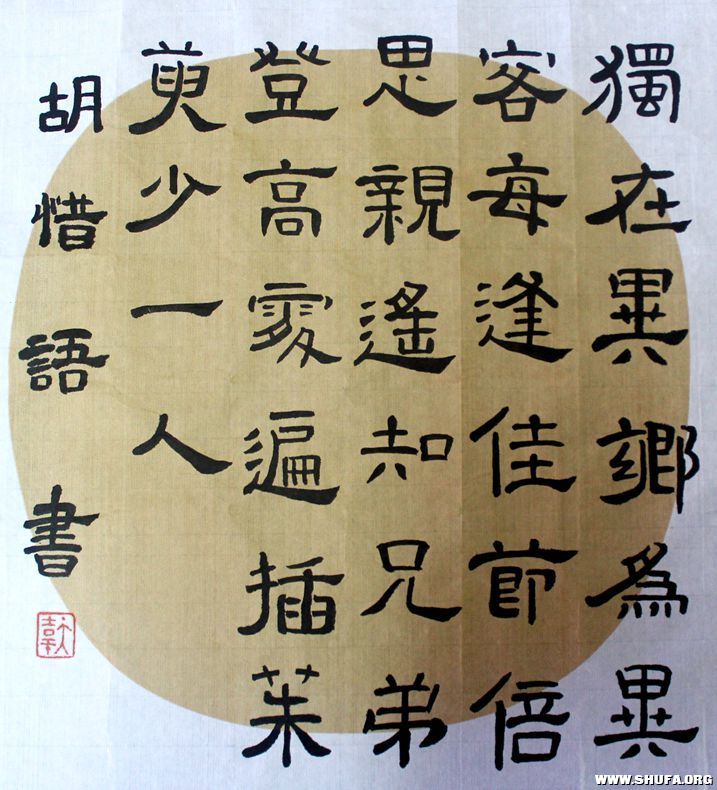 獨在異鄉為異
客每逢佳節倍
思親遙知兄弟
登高處遍插茱
萸少一人
胡惜語書
WWW.SHUFA.ORG